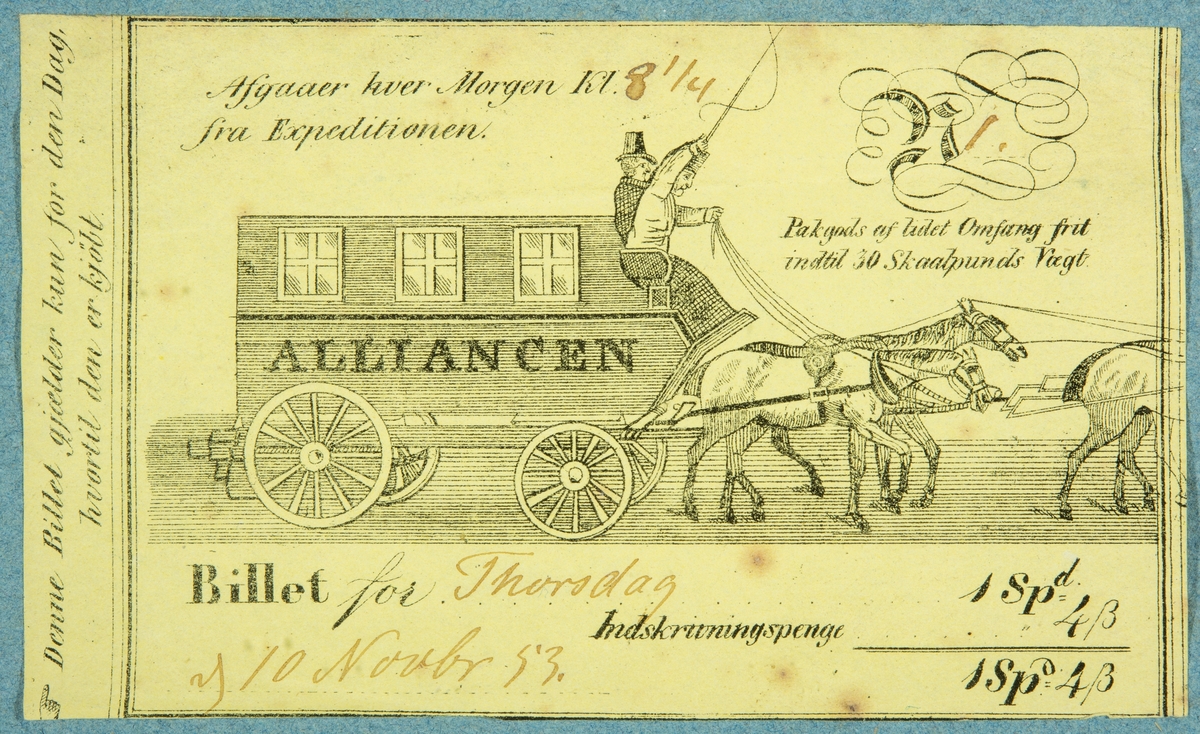 Denne Billet gjælder kun for den Dag,
hvortil den er kjöbt.
Afgaaer hver Morgen Kl. 8 1/4
fra Expeditionen.
N 1.
Pakgods af lidet Omfang frit
indtil 30 Skaalpunds Vægt.
ALLIANCEN
Billet for Thorsdag
d 10 Novbr 53.
1 Spd.
Indskrivningspenge 4 β
1 Spd. 4 β